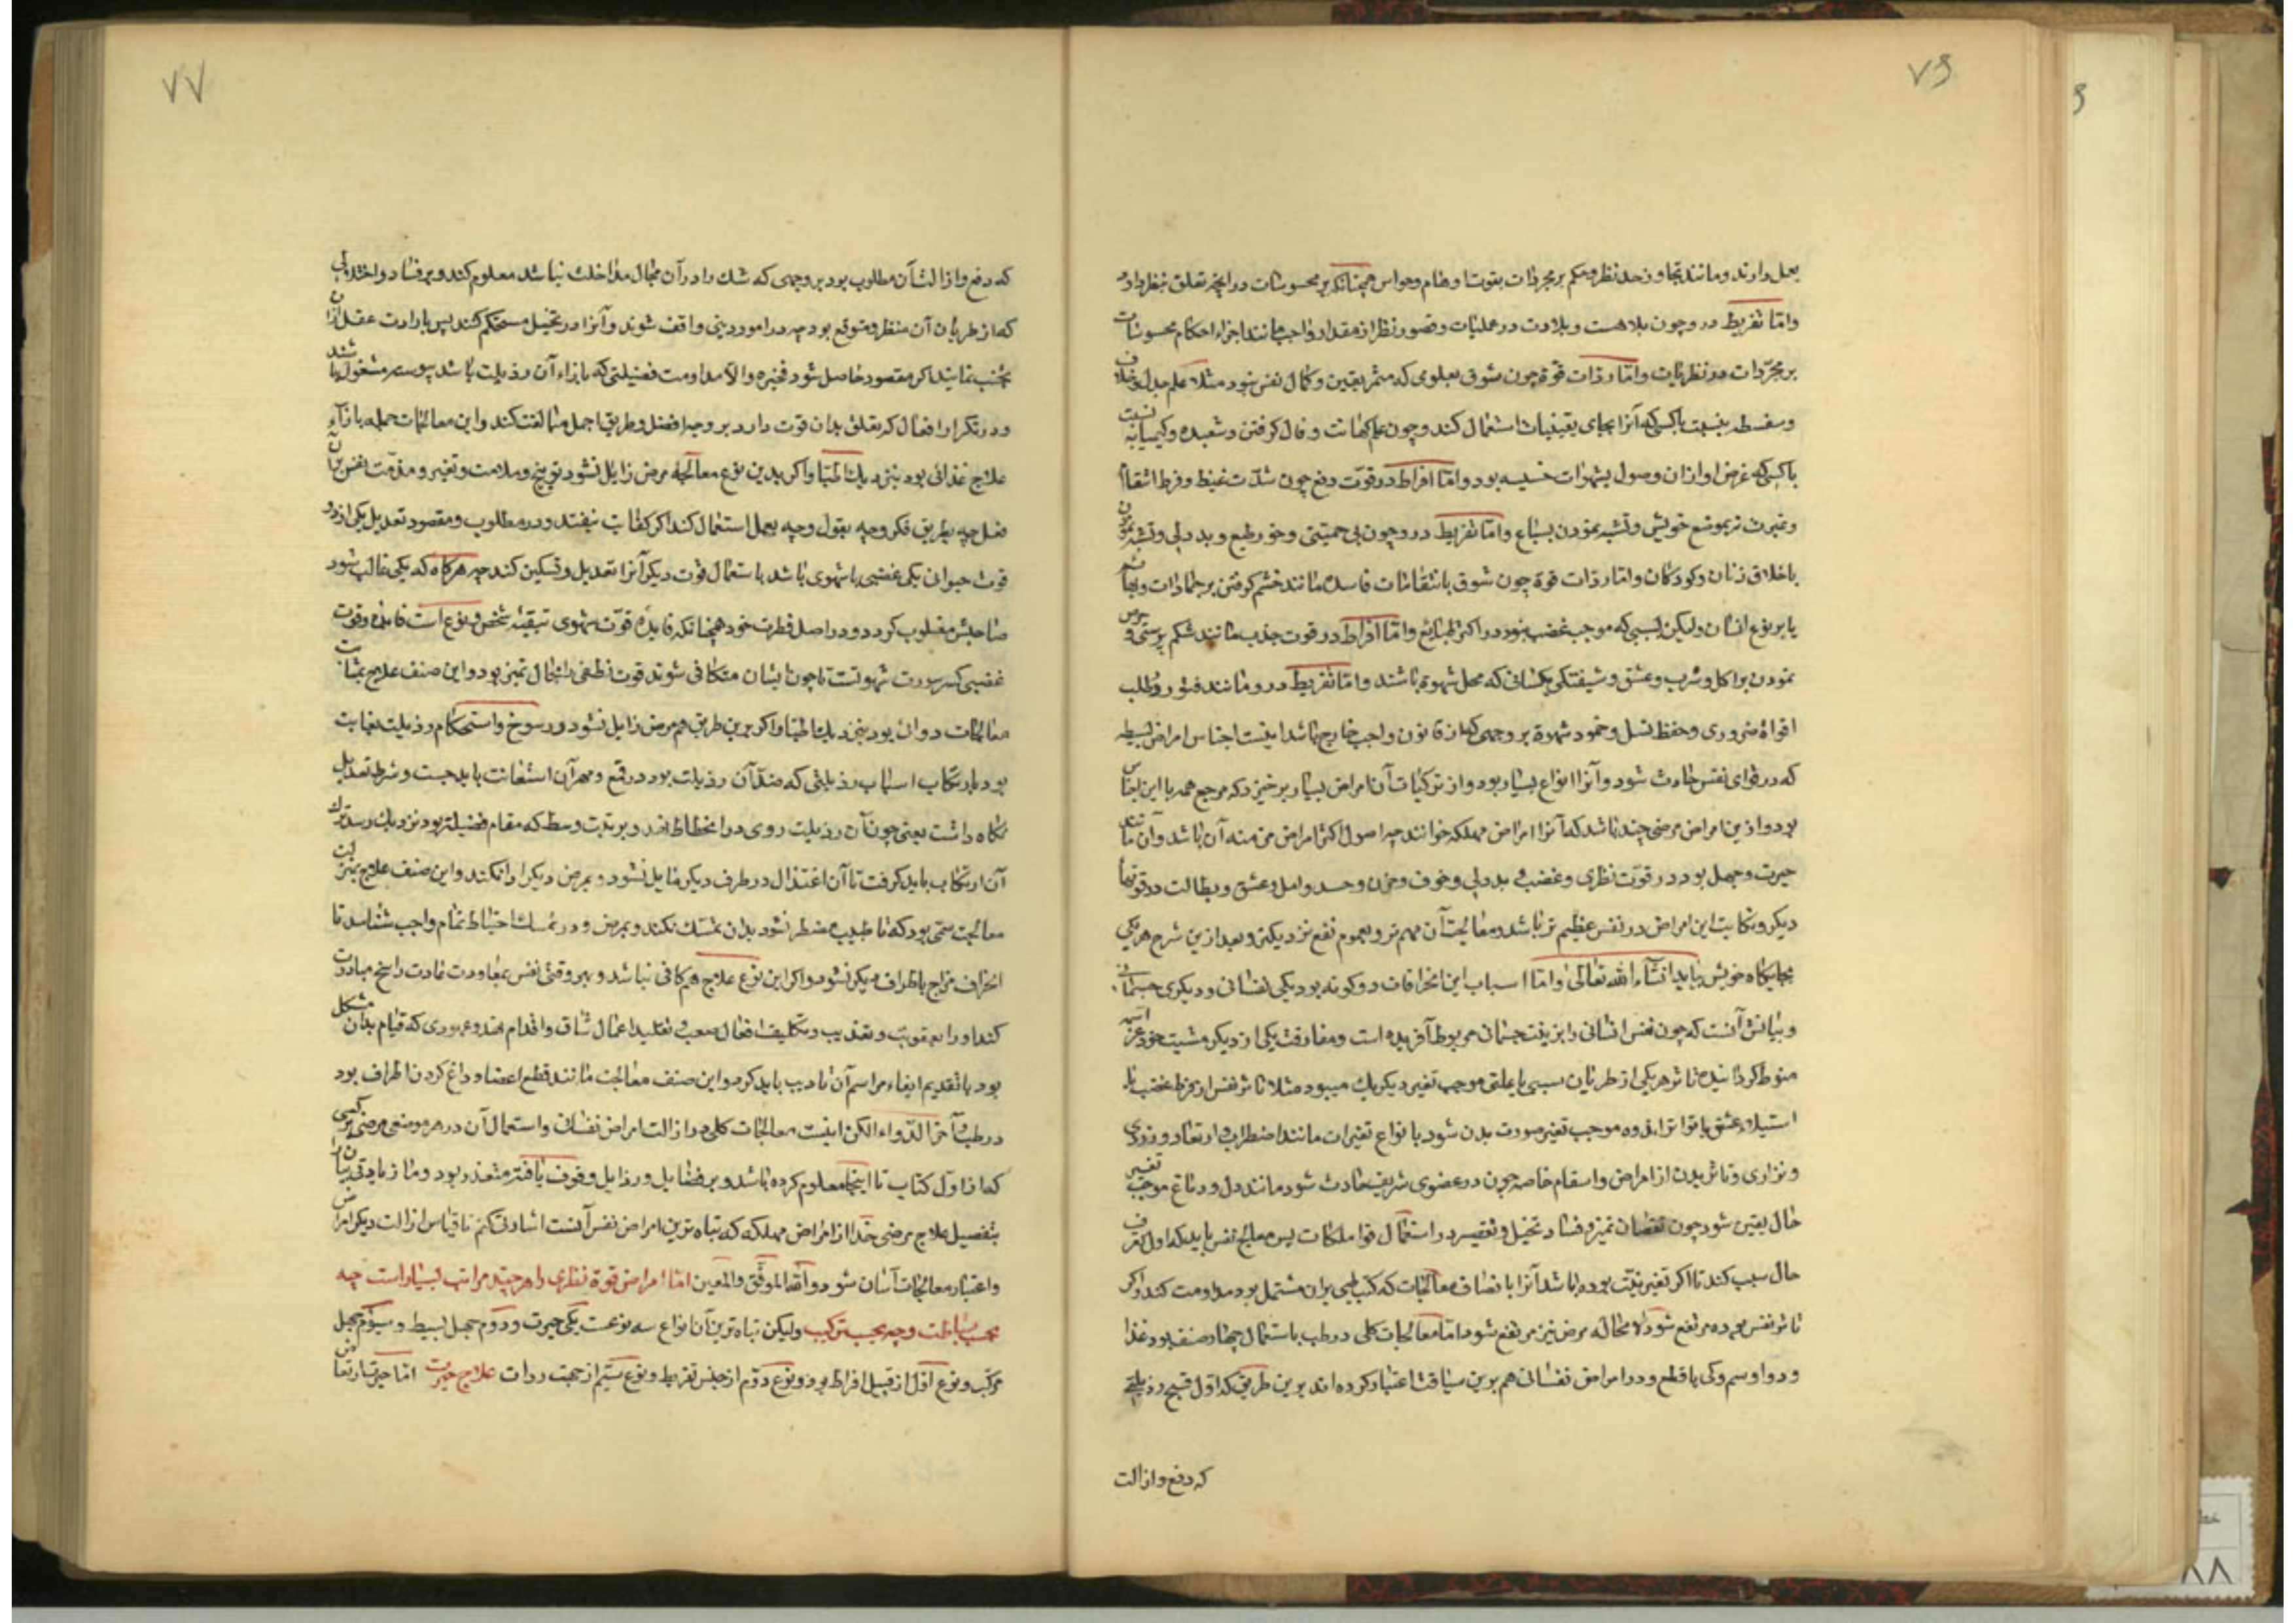 ۷۶
بعمل دارند و مانند تجاوز حد نظر و حکم بر مجردات بقوتها و هام و حواس همچنانکه بر محسوسات در آنچه تعلق بنظر دارد
واما تفریط درو چون بلاهت و بلادت در عملیات و قصور نظر از مقدار واجب مانند اجراء احکام محسوسات
بر مجرّدات در نظریات واما رداءت قوة چون شوق بعلومی که مثمر یقین و کمال نفس نبود مثلا علم جدل و خلاف
و سفسطه بنسبت باکسی که آنرا بجای یقینیات استعمال کند و چون علم کهانت و فال گرفتن و شعبده و کیمیا بنسبت
باکسی که غرض او ازان وصول بشهوات خسیسه بود واما افراط در قوّت دفع چون شدّت غیظ و فرط انتقام
و غیرت نه بموضع خویش و تشبه نمودن بسباع واما تفریط درو چون بی حمیتی و خور طبع و بد دلی و تشبه نمودن
باخلاق زنان و کودکان واما رداءت قوة چون شوق بانتقامات فاسده مانند خشم گرفتن بر جمادات و بهایم
یا بر نوع انسان ولیکن بسببی که موجب غضب نبود در اکثر طبایع واما افراط در قوت جذب مانند شکم پرستی و حرص
نمودن بر اکل و شرب و عشق و شیفتگی بکسانی که محل شهوة نباشند واما تفریط درو مانند فتور در طلب
اقواة ضروری و حفظ نسل و خمود شهوة بر وجهی که از قانون واجب خارج باشد اینست اجناس امراض بسیطه
که در قوای نفس حادث شود و آنرا انواع بسیار بود و از ترکیبات آن امراض بسیار برخیزد که مرجع همه با این اجناس
بود و ازین امراض مرضی چند باشد که آنرا امراض مهلکه خوانند چه اصول اکثر امراض مزمنه آن باشد و آن مانند
حیرت و جهل بود در قوّت نظری و غضب و بد دلی و خوف و حزن و حسد و امل و عشق و بطالت در قوتها
دیگر و نکایت این امراض در نفس عظیم تر باشد و معالجت آن مهم تر و بعموم نفع نزدیکتر و بعد ازین شرح هر یکی
بجایگاه خویش بیاید انشآء الله تعالی واما اسباب این انحرافات دو گونه بود یکی نفسانی و دیگری جسمانی
و بیانش آنست که چون نفس انسانی را بزینت جسمانی مربوط آفریده است و مفارقت یکی از دیگر بمشیت خود عزّ اسمه
منوط گردانیده تاثر هر یکی از طریان سببی یا علتی موجب تغیر دیگر یک میبود مثلا تاثر نفس از فرط غضب یا
استیلاء عشق یا تواتر اندوه موجب تغیر صورت بدن شود بانواع تغیرات مانند اضطراب و ارتعاد و زردی
و نزاری و تاثر بدن از امراض و اسقام خاصه چون در عضوی شریف حادث شود مانند دل و دماغ موجب تغییر
حال یقین شود چون نقصان تمیز و فساد تخیل و تقصیر در استعمال قوا و ملکات پس معالج نفس باید که اول تعرف
حال سبب کند تا اگر تغیر بنیت بوده باشد آنرا باصناف معالجات که کتب طبی بران مشتمل بود مداومت کند و اگر
تاثر نفس بوده مرتفع شود لا محاله مرض نیز مرتفع شود اما معالجات کلی در طب باستعمال چهار صنف بود غذا
و دوا و سم و کی یا قطع و در امراض نفسانی هم برین سیاقت اعتبار کرده اند برین طریق که اول قبح رذیلتی
که دفع و ازالت
۷۷
که دفع و ازالت آن مطلوب بود بر وجهی که شک را در آن مجال مداخلت نباشد معلوم کند و بر فساد و اختلالی
که از طریان آن منتظر و متوقع بود چه در امور دینی واقف شوند و آنرا در تخیل مستحکم کند پس بارادت عقل ازان
تجنب نمایند اگر مقصود حاصل شود فخیره والا مداومت فضیلتی که بازاء آن رذیلت باشد پیوسته مشغول باشند
و در تکرار افعال که تعلق بدان قوت دارد بر وجه افضل و طریق اجمل مبالغت کند و این معالجات جمله بازآء
علاج غذائی بود بنزدیک اطبّا و اگر بدین نوع معالجه مرض زایل نشود توبیخ و ملامت و تعییر و مذمّت نفس بران
فعل چه بطریق فکر و چه بقول و چه بعمل استعمال کند اگر کفایت نیفتد و در مطلوب و مقصود تعدیل یکی از دو
قوت حیوانی یکی غضبی یا شهوی باشد باستعمال قوت دیگر آنرا تعدیل و تسکین کند چه هرگاه که یکی غالب شود
صاحبش مغلوب گردد و در اصل فطرت خود همچنانکه فایدهٔ قوت شهوی تبقیهٔ شخص و نوع است فایده قوت
غضبی کسر سورت شهوتست تا چون ایشان متکافی شوند قوت نطقی را مجال تمیز بود و این صنف علاج بمثابت
معالجات دوائی بود بنزدیک اطبّا و اگر برین طریق هم مرض زایل نشود و رسوخ و استحکام رذیلت بغایت
بود بارتکاب اسباب رذیلتی که ضدّ آن رذیلت بود در قمع و قهر آن استعانت باید جست و شرط تعدیل
نگاه داشت یعنی چون آن رذیلت روی در انحطاط نهد و برتبت وسط که مقام فضیلت بود نزدیک رسد ترک
آن ارتکاب باید گرفت تا آن اعتدال در طرف دیگر مایل نشود و بمرض دیگر ادا نکند و این صنف علاج بمنزلت
معالجت سمّی بود که تا طبیب مضطر نشود بدان تمسّک نکند و بمرض و در تمسک احتیاط تمام واجب شناسد تا
انحراف مزاج باطراف دیگر نشود و اگر این نوع علاج هم کافی نباشد و بهر وقتی نفس بمعاودت عادت راسخ مبادرت
کند او را بعقوبت و تعذیب و تکلیف افعال صعب و تقلید اعمال شاق و اقدام نذور و عهودی که قیام بدان مشکل
بود با تقدیم ایفاء مراسم آن تادیب باید کرد و این صنف معالجت مانند قطع اعضا و داغ کردن اطراف بود
در طب و آخر الدّواء الکی اینست معالجات کلی در ازالت امراض نفسانی و استعمال آن در هر موضعی مرضی بر کسی
که از اول کتاب تا اینجا معلوم کرده باشد و بر فضایل و رذایل وقوف یافته متعذر نبود و ما زیادتی بیان را
بتفصیل علاج مرضی چند از امراض مهلکه که تباه ترین امراض نفس آنست اشارتی کنیم تا قیاس ازالت دیگر امراض
و اعتبار معالجات آسان شود و الله الموفّق والمعین امّا امراض قوة نظری را هر چند مراتب بسیار است چه
بحسب بساطت و چه بحسب ترکیب ولیکن تباه ترین آن انواع سه نوعست یکی حیرت و دوّم جهل بسیط و سیوّم جهل
مرکّب و نوع اوّل از قبیل افراط بود و نوع دوّم از جنس تفریط و نوع سیّم از جهت رداءت علاج حیرت امّا حیرت از تعارض